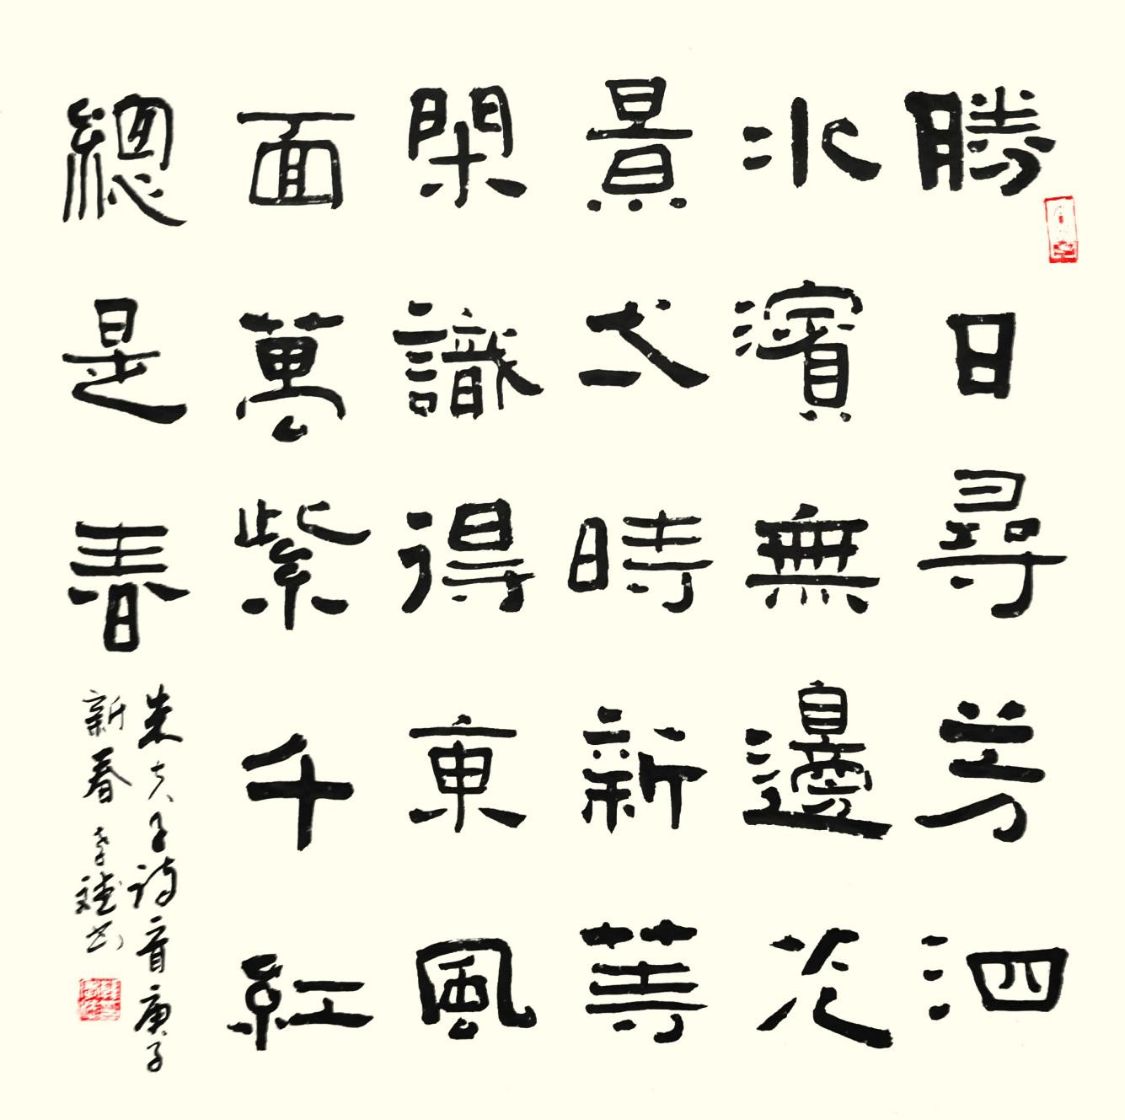 勝日尋芳泗
水濱無邊光
景弌時新等
閑識得東風
面萬紫千紅
總是春
朱夫子詩一首庚子
新春李斌书